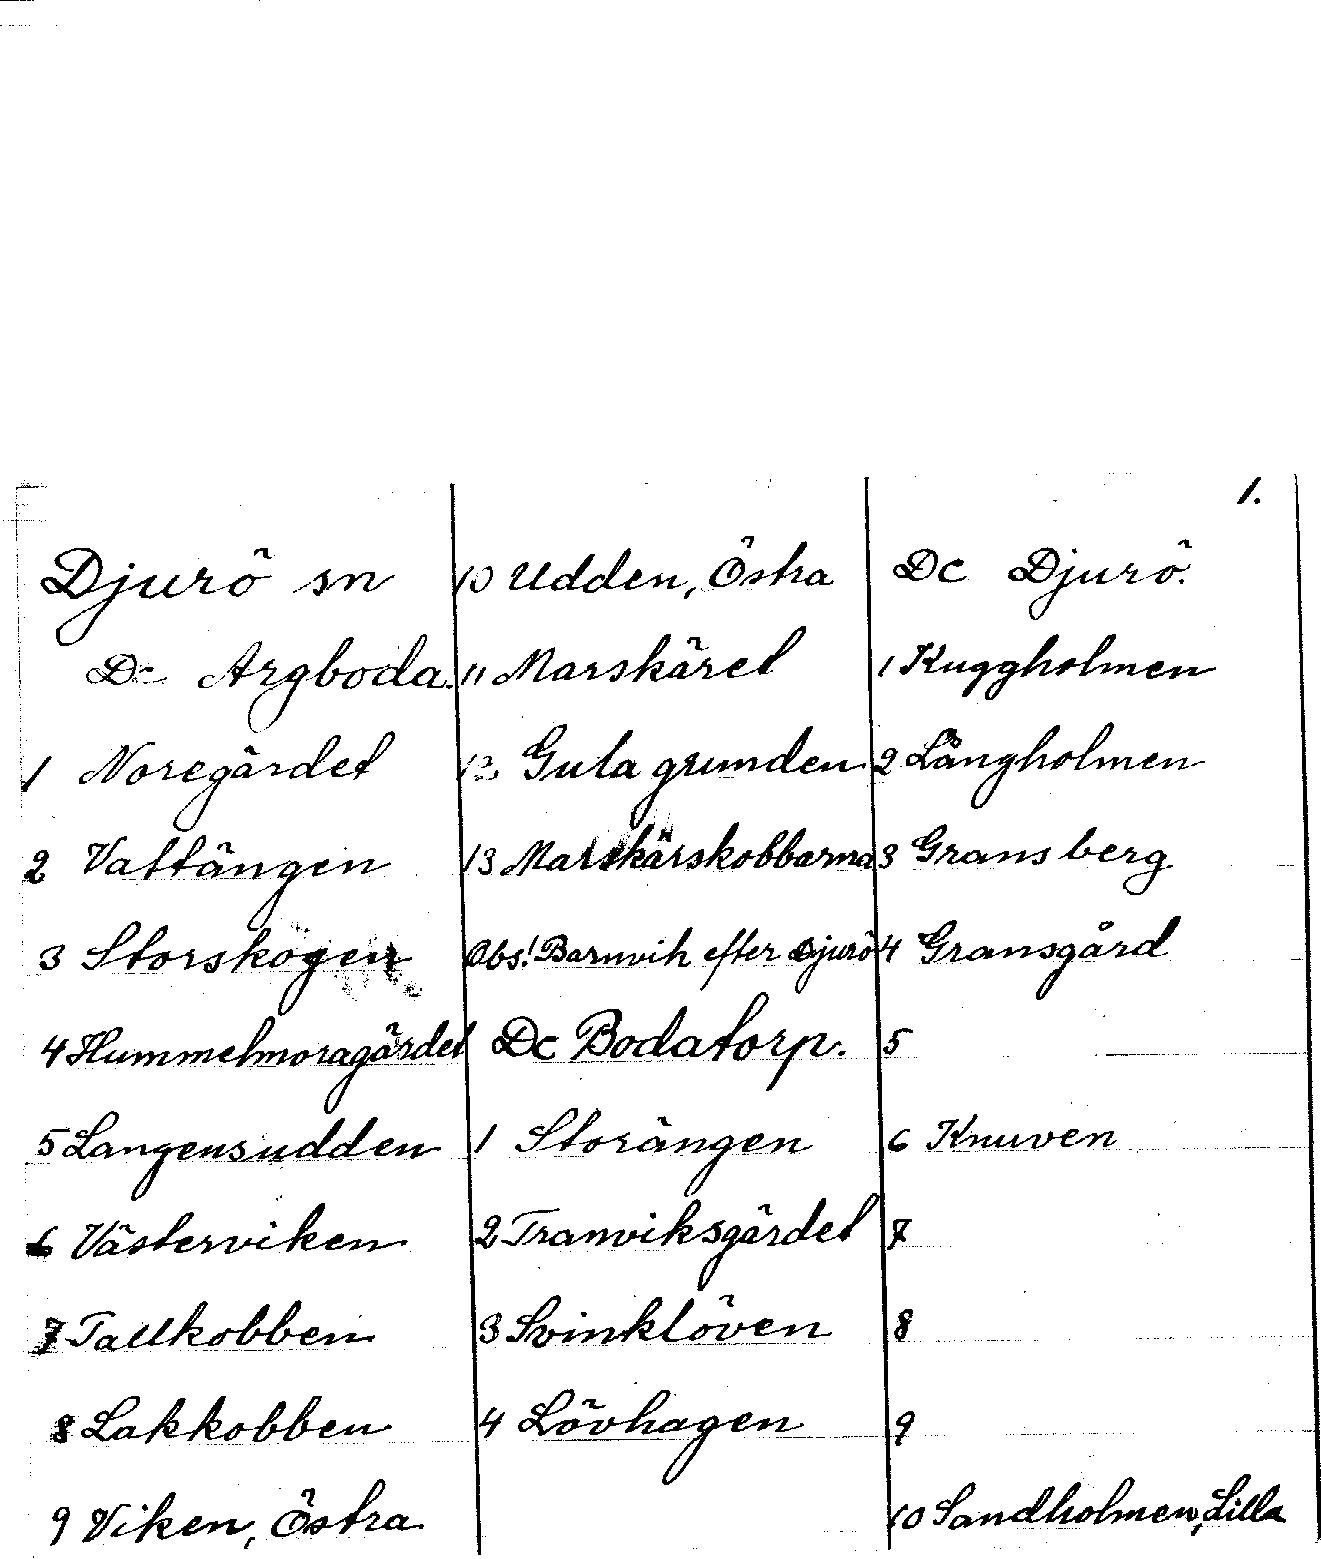 1.
Djurö sn
Dc Argboda.
1 Noregärdet
2 Vattängen
3 Storskogen
4 Hummelmoragärdet
5 Langensudden
6 Västerviken
7 Tallkobben
8 Lakkobben
9 Viken, Östra
10 Udden, Östra
11 Marskäret
12 Gula grunden
13 Marskärskobbarna
Obs! Barnvik efter Djurö
Dc Bodatorp.
1 Storängen
2 Tranviksgärdet
3 Svinklöven
4 Lövhagen
Dc Djurö.
1 Kuggholmen
2 Långholmen
3 Gransberg
4 Gransgård
5
6 Knuven
7
8
9
10 Sandholmen, Lilla